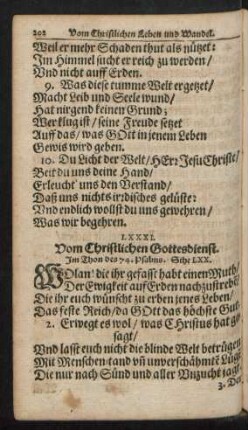 202 Vom Christlichen Leben und Wandel.
Weil er mehr Schaden thut als nützet:
Im Himmel sucht er reich zu werden/
Vnd nicht auff Erden.
9. Was diese tumme Welt ergetzet/
Macht Leib und Seele wund/
Hat nirgend keinen Grund;
Wer klug ist/ seine Freude setzet
Auff das/ was GOtt in jenem Leben
Gewis wird geben.
10. Du Licht der Welt/ HErr Jesu Christe/
Beit du uns deine Hand/
Erleucht' uns den Verstand/
Daß uns nichts irdisches gelüste:
Vnd endlich wollst du uns gewehren/
Was wir begehren.
LXXXI.
Vom Christlichen Gottesdienst.
Im Thon des 74. Psalms. Sihe LXX.
Wolan! die ihr gefasst habt einen Muth/
Der Ewigkeit auf Erden nachzustreben/
Die ihr euch wünscht zu erben jenes Leben/
Das feste Reich/ da GOtt das höchste Gut.
2. Erwegt es wol/ was Christus hat ge-
sagt/
Vnd lasst euch nicht die blinde Welt betrügen
Mit Menschen-tand vñ unverschähmtē Lügen
Die nur nach Sünd und aller Unzucht jagt.
3. Da